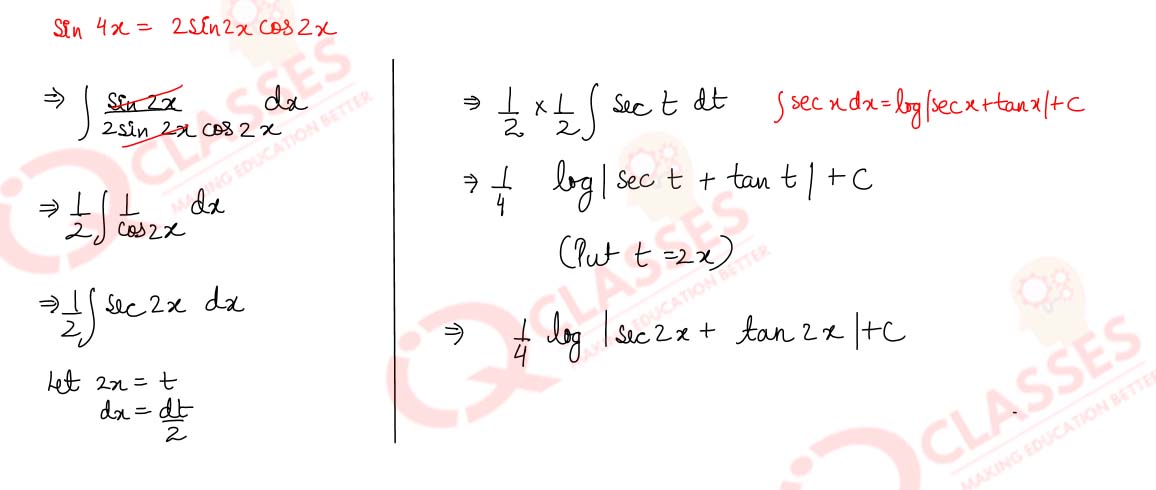 sin 4x = 2sin2x cos2x
⇒ ∫ sin 2x / 2sin 2x cos 2x dx
⇒ 1/2 ∫ 1/cos2x dx
⇒ 1/2 ∫ sec 2x dx
Let 2x = t
dx = dt/2
⇒ 1/2 × 1/2 ∫ sec t dt ∫ sec x dx = log|sec x + tan x| + C
⇒ 1/4 log|sec t + tan t| + C
(Put t = 2x)
⇒ 1/4 log |sec2x + tan 2x| + C
CLASSES
MAKING EDUCATION BETTER
CLASSES
MAKING EDUCATION BETTER
CLASSES
MAKING EDUCATION BETTER